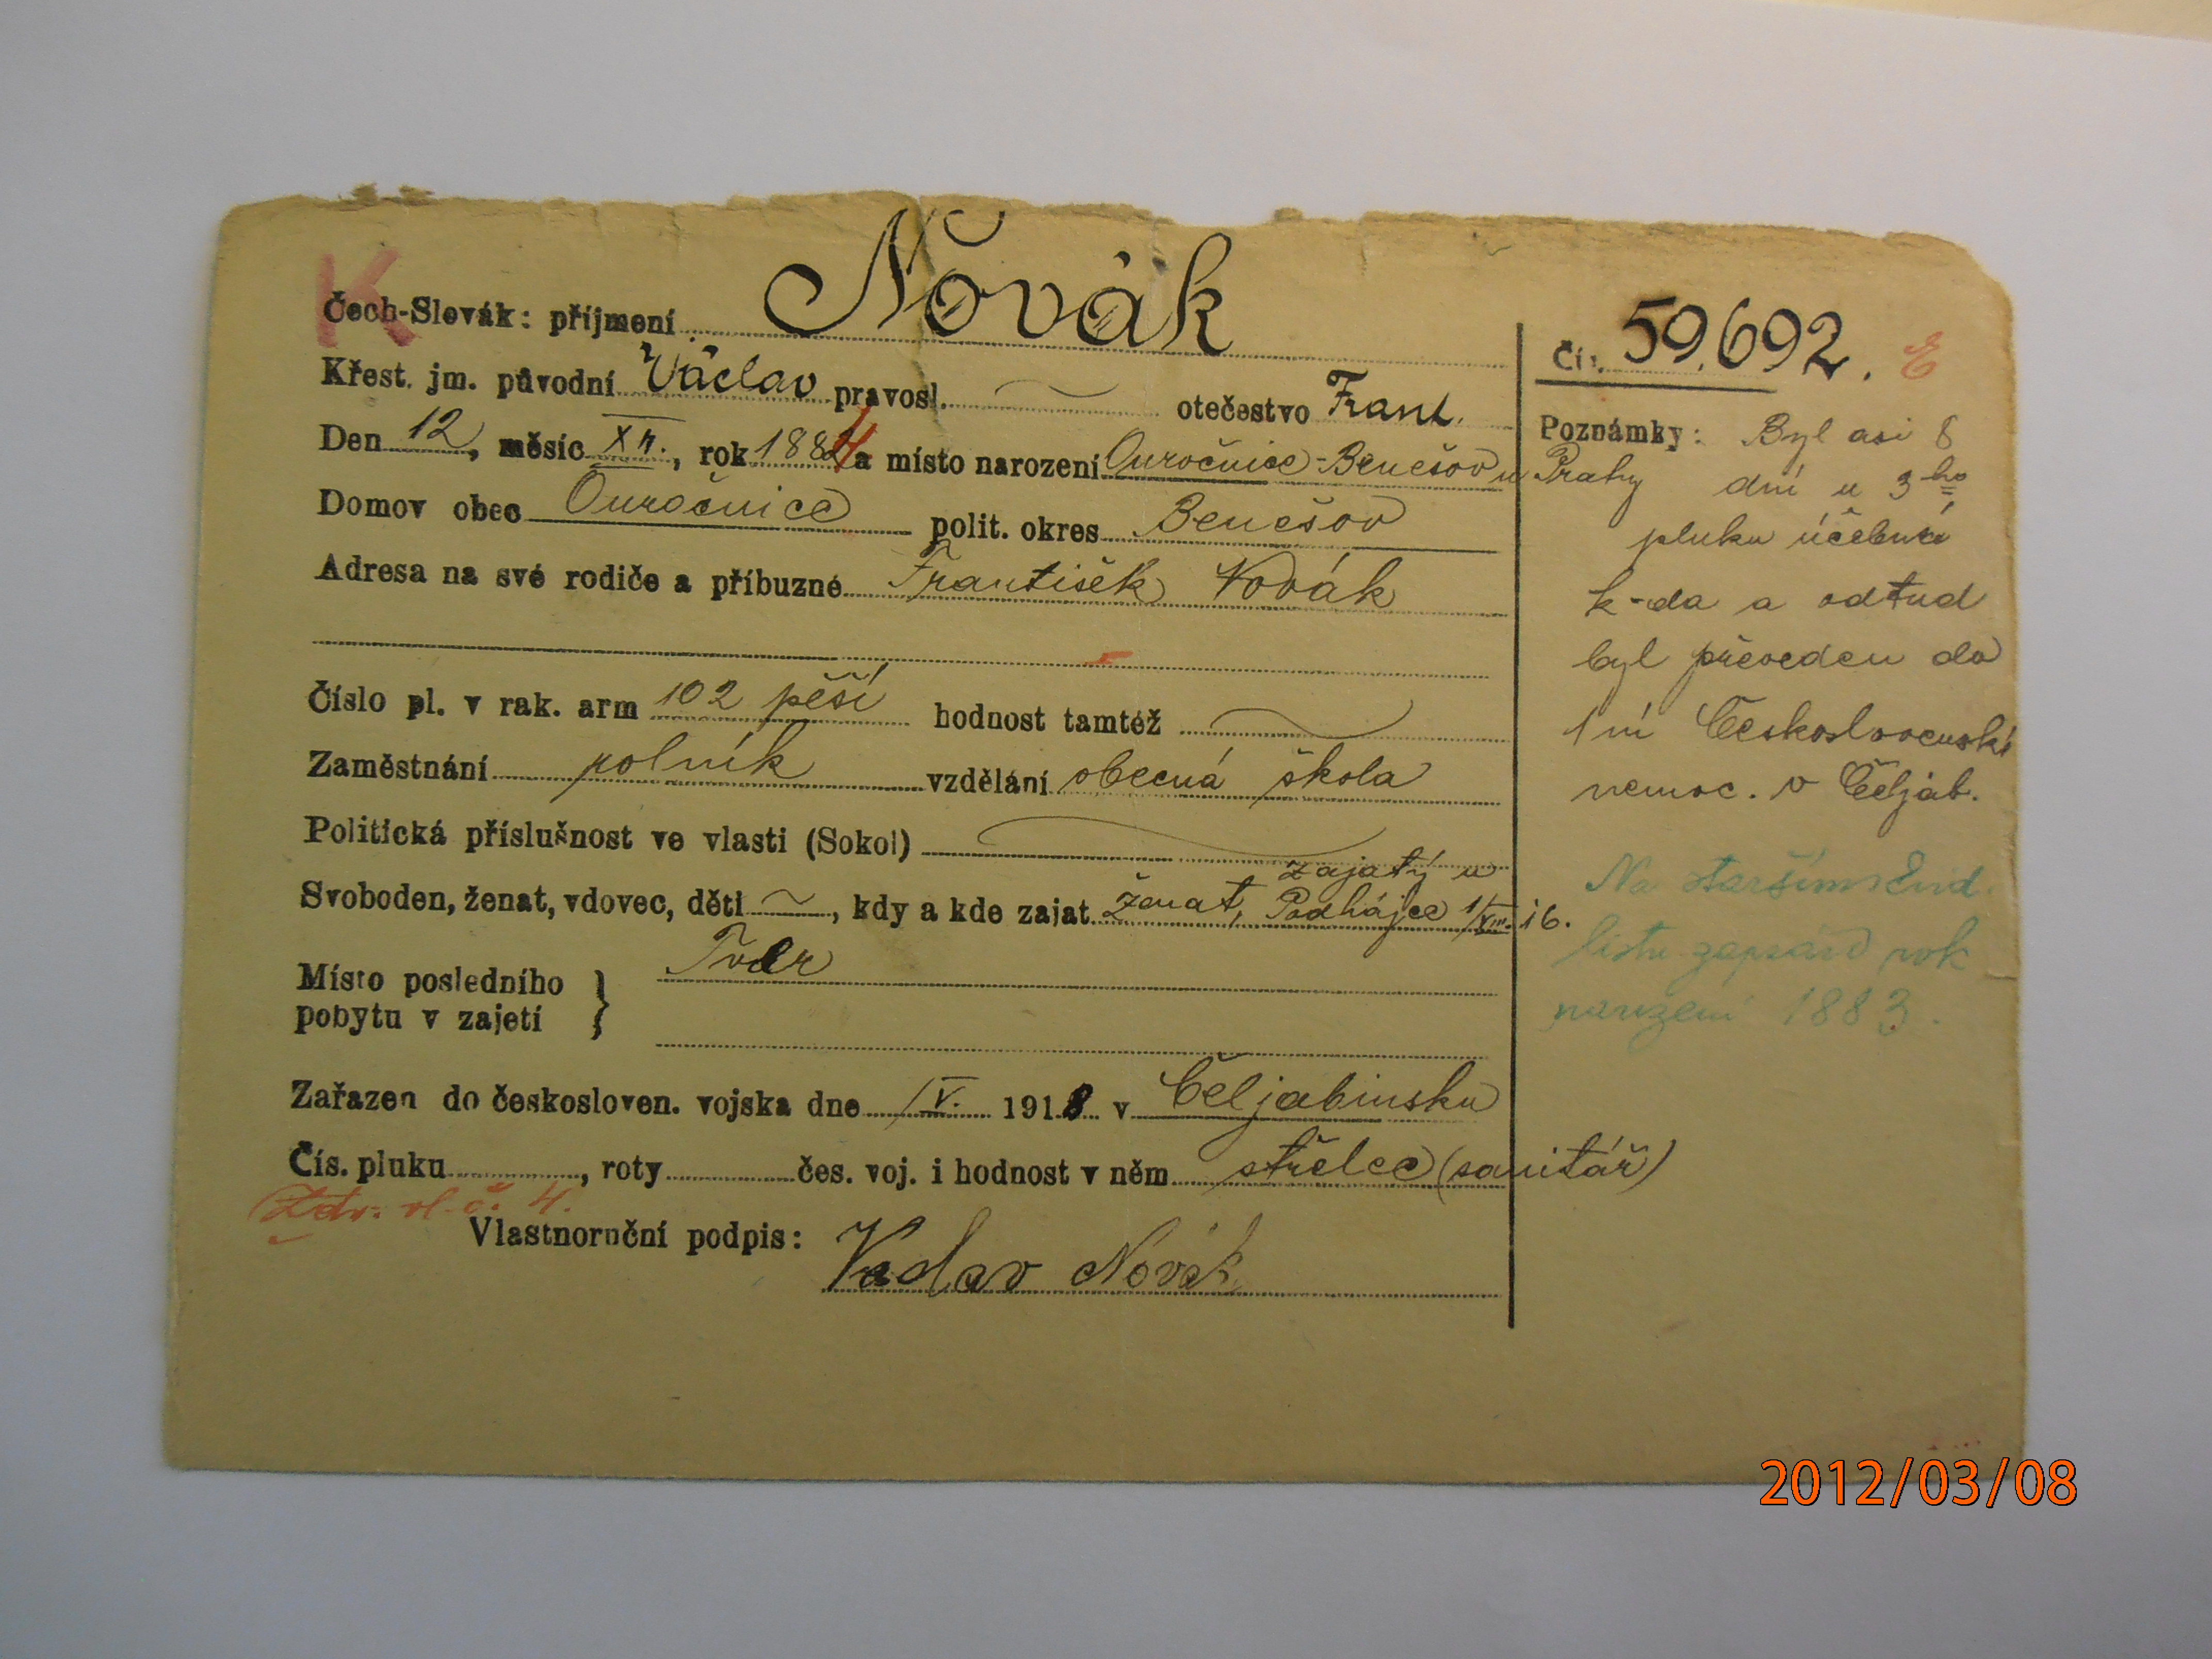 K
Čech-Slovák: příjmení Novák
Čís. 59.692. E
Křest. jm. původní Václav pravosl. otečestvo Frant.
Den 12, měsíc XII., rok 1884 a místo narození Ouročnice-Benešov u Prahy
Domov obec Ouročnice polit. okres Benešov
Adresa na své rodiče a příbuzné František Novák
Číslo pl. v rak. arm 102 pěší hodnost tamtéž
Zaměstnání rolník vzdělání obecná škola
Politická příslušnost ve vlasti (Sokol)
zajatý u
Svoboden, ženat, vdovec, děti, kdy a kde zajat ženat, Podhájce 1/VIII. 16.
Místo posledního pobytu v zajetí } Tver
Zařazen do českosloven. vojska dne /V. 1918 v Čeljabinsku
Čís. pluku, roty čes. voj. i hodnost v něm střelec (sanitář)
Zdr. vl. č. 4.
Vlastnoruční podpis: Vaclav Novák
Poznámky: Byl asi 8
dní u 3ho
pluku účebná
k-da a odtud
byl převeden do
1ní Československé
nemoc. v Čeljab.
Na starším Evid.
listu zapsán rok
narození 1883.
2012/03/08